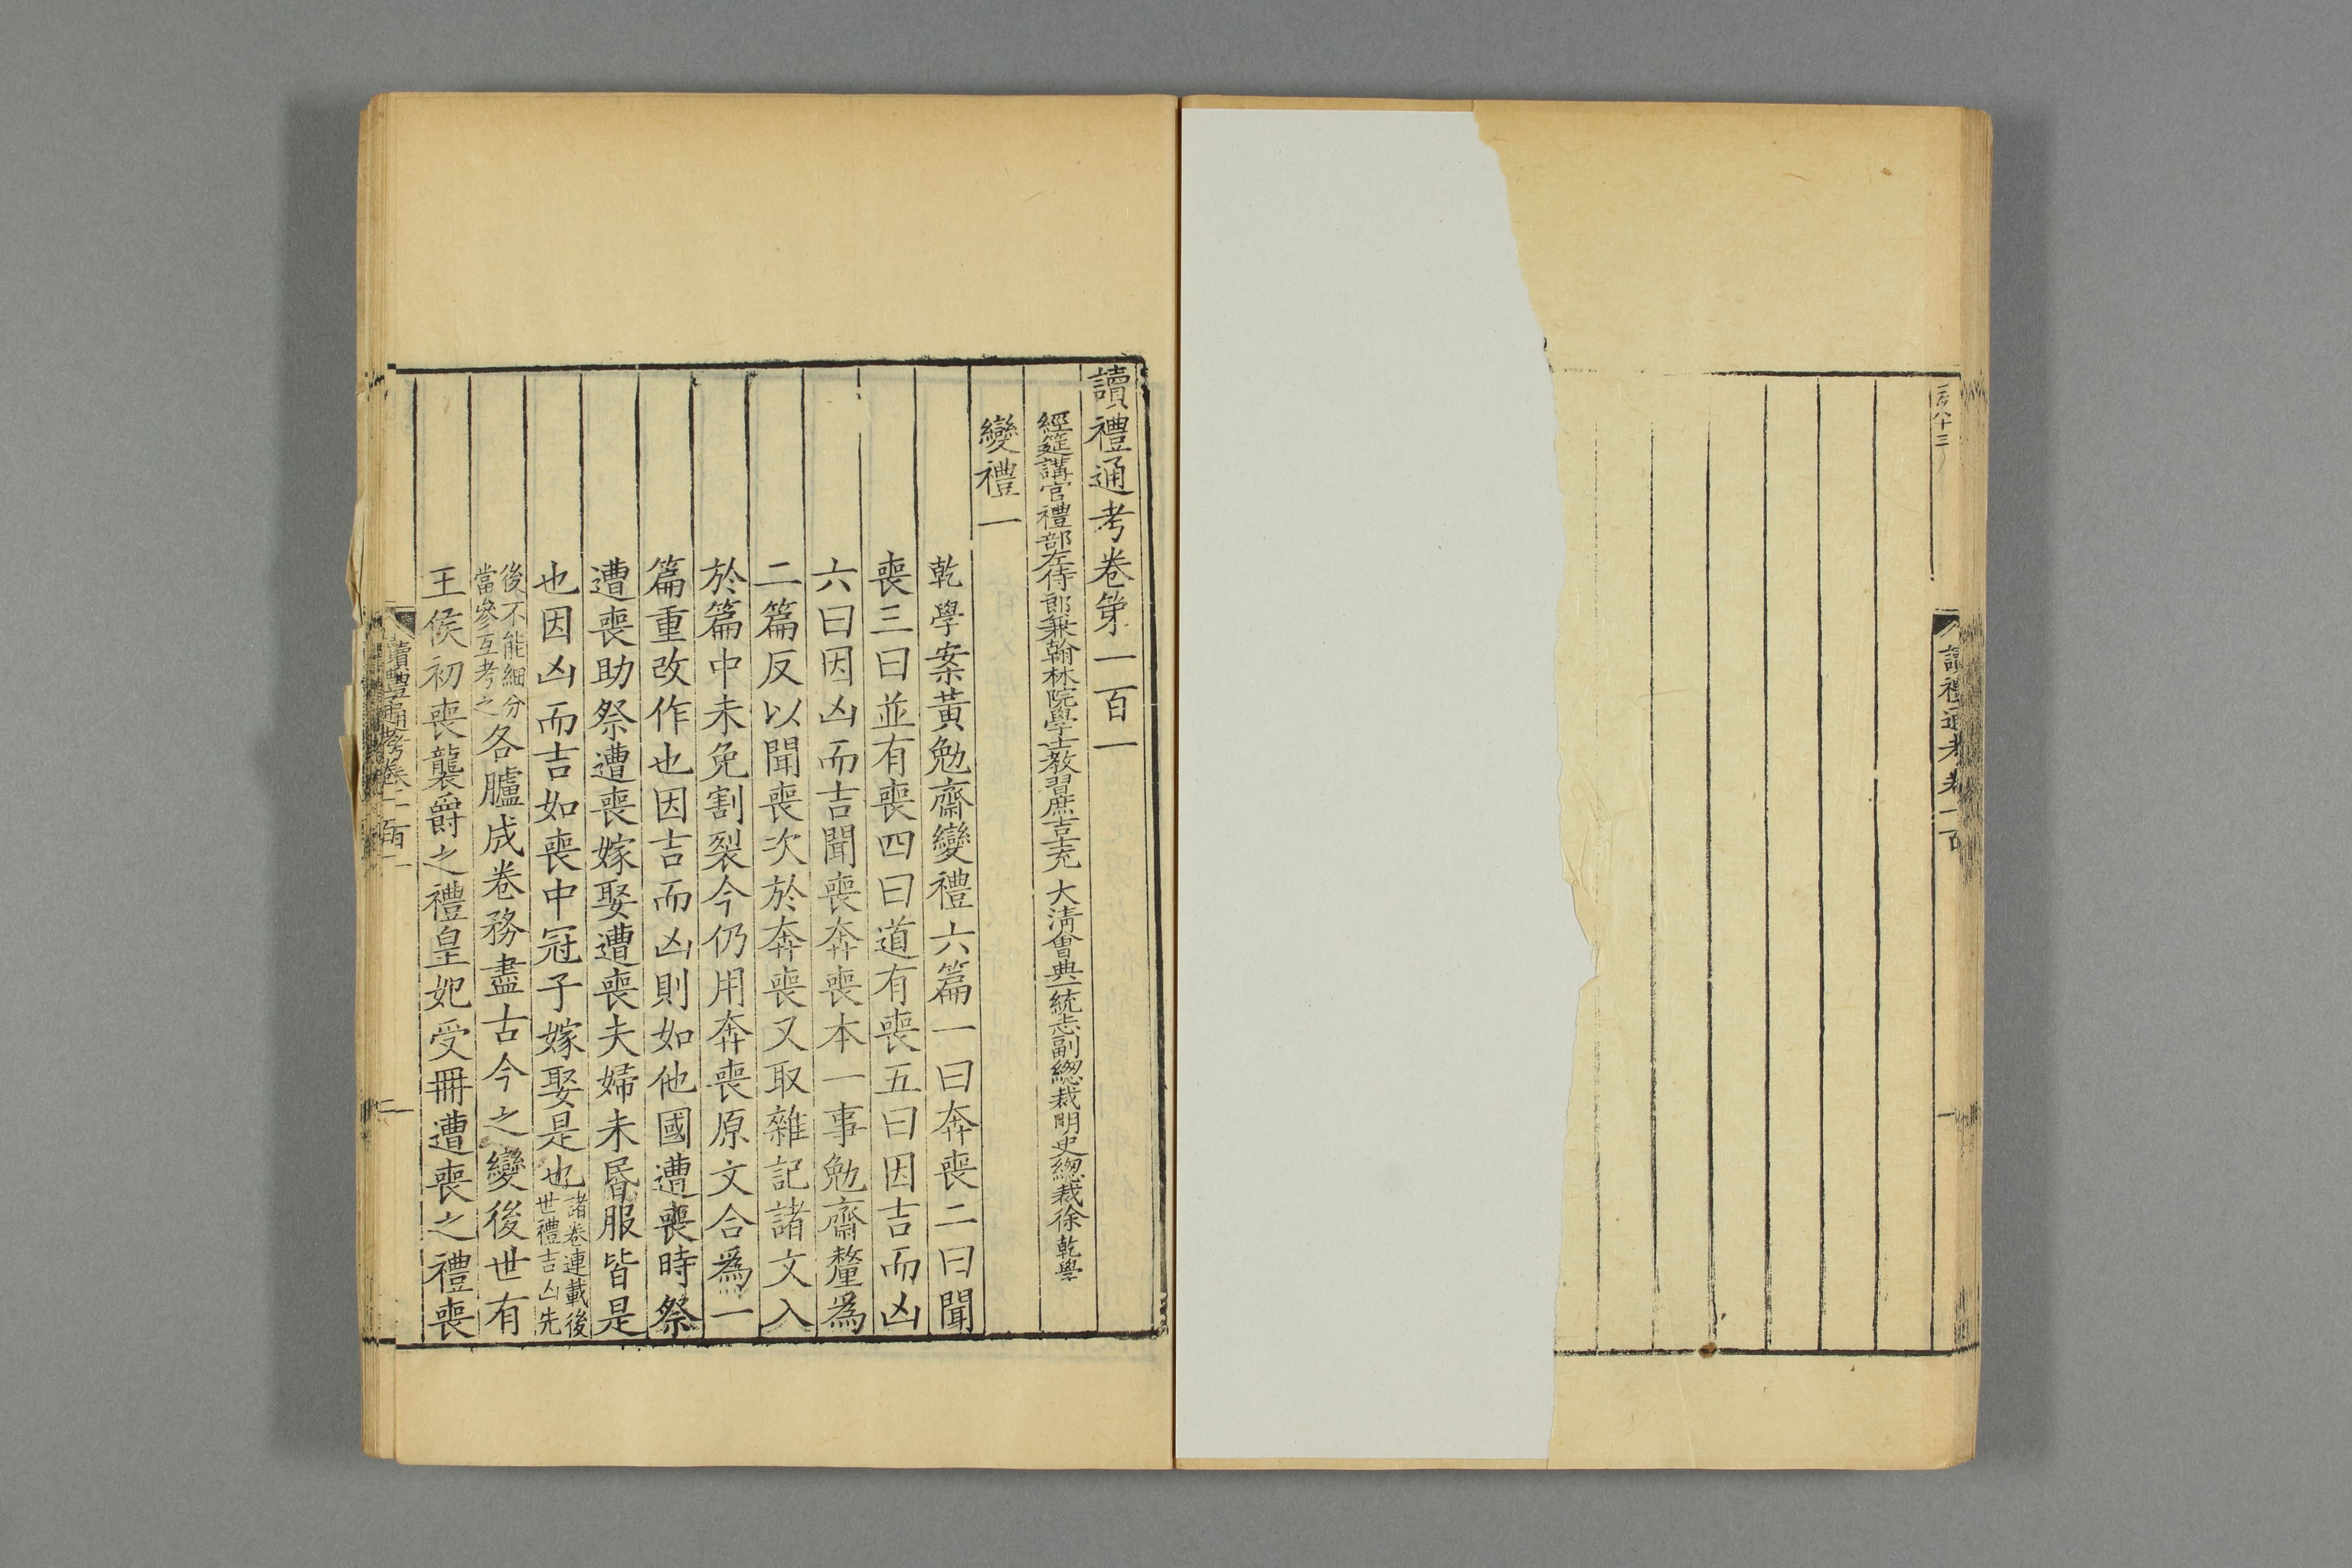 讀禮通考卷一百
一
讀禮通考卷第一百一
經筵講官禮部左侍郎兼翰林院學士教習庶吉士充 大清會典一統志副總裁明史總裁徐乾學
變禮一
乾學案黃勉齋變禮六篇一曰奔喪二曰聞
喪三曰並有喪四曰道有喪五曰因吉而凶
六曰因凶而吉聞喪奔喪本一事勉齋釐為
二篇反以聞喪次於奔喪又取雜記諸文入
於篇中未免割裂今仍用奔喪原文合為一
篇重改作也因吉而凶則如他國遭喪時祭
遭喪助祭遭喪嫁娶遭喪夫婦未昏服皆是
也因凶而吉如喪中冠子嫁娶是也諸卷連載後世禮吉凶先
後不能細分當參互考之各臚成卷務盡古今之變後世有
王侯初喪襲爵之禮皇妃受冊遭喪之禮喪
讀禮通考卷一百一
一